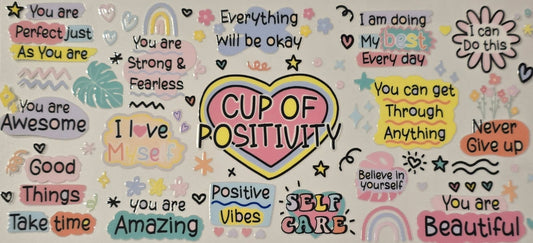 You are
Perfect just
As You are
You are
Strong &
Fearless
Everything
Will be okay
I am doing
My best
Every day
I can
Do this
You are
Awesome
I love
Myself
CUP OF
POSITIVITY
You can get
Through
Anything
Never
Give up
Good
Things
Take time
You are
Amazing
Positive
Vibes
SELF
CARE
Believe in
yourself
You are
Beautiful